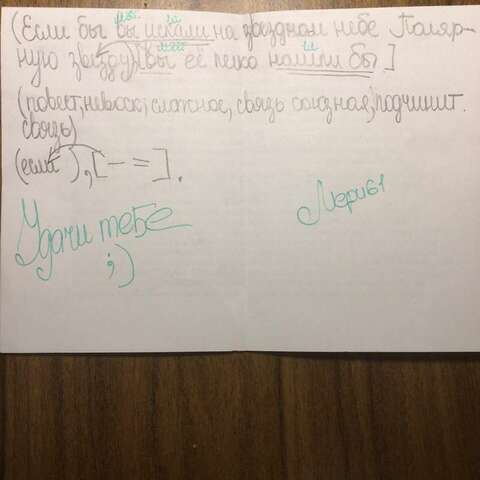 (Если бы мест. вы гл. искали на звёздном небе Поляр-
ную звезду), [вы мест. её легко нашли гл. бы]
(повест., невоскл., сложное, связь союзная, подчинит.
связь)
(если ), [— =].
Удачи тебе
;)
Мери61